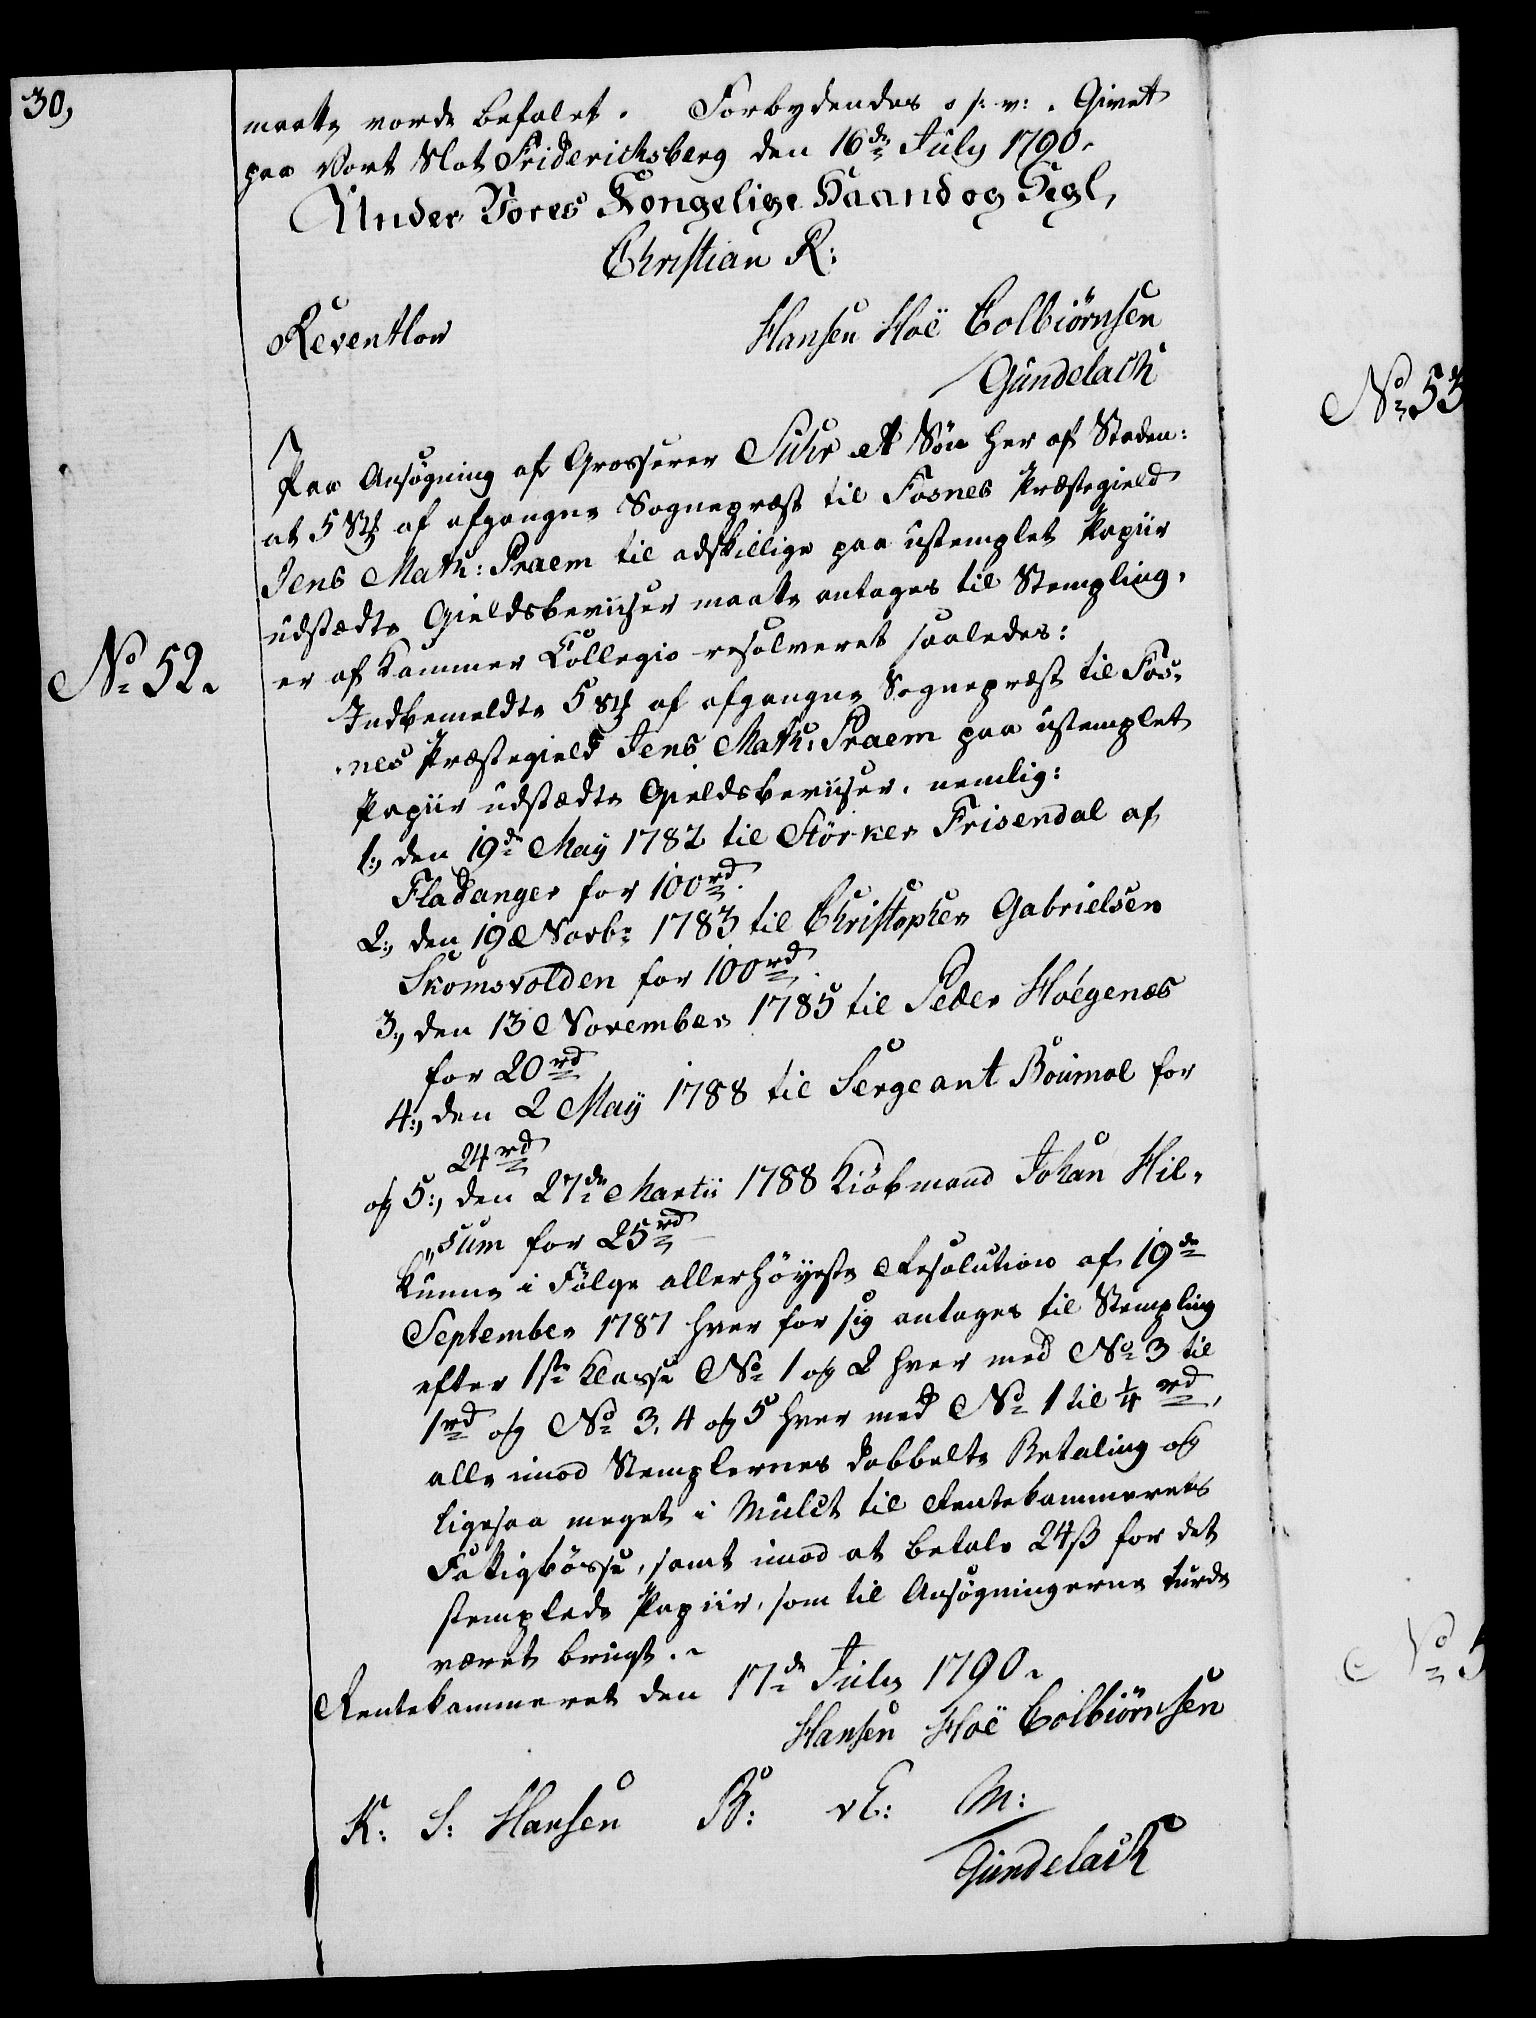 30,
maatte vorde befalet. Forbydendes s: v:. Givet
paa Vort Slot Friderichsberg den 16de July 1790.
Under Vores Kongelige Haand og Segl,
Christian R:
Reventlow Hansen Hoë Colbiörnsen
Gündelach
Paa Ansøgning af Grosserer Suhr et Søn her af Staden:
at 5 Stk af afgangne Sognepræst til Fosnes Præstegield
Jens Math: Praem til adskillige paa ustemplet Papiir
udstædte Gieldsbeviiser maatte antages til Stempling,
er af Kammer Collegio resolveret saaledes:
No 52.
Indbemeldte 5 Stk af afgangne Sognepræst til Fos-
nes Præstegield Jens Math: Praem paa ustemplet
Papiir udstædte Gieldsbeviiser, nemlig:
1:, den 19de May 1782 til Störker Frisendal af
Fladanger for 100rd.
2:, den 19 Novbr 1783 til Christopher Gabrielsen
Skomsvolden for 100rd.
3:, den 13 November 1785 til Peder Høegenæs
for 20rd
4:, den 2 May 1788 til Sergeant Boümol for
24rd
og 5:, den 27de Martii 1788 Kiöbmand Johan Hil-
sum for 25rd
kunne i Følge allerhöyeste Resolution af 19de
September 1787 hver for sig antages til Stempling
efter 1ste Klasse No 1 og 2 hver med No 3 til
1rd og No 3, 4 og 5 hver med No 1 til 1/4 rd,
alle imod Stemplernes dobbelte Betaling og
ligesaa meget i Mulct til Rentekammerets
Fattigbösse, samt imod at betale 24ß for det
stemplede Papiir, som til Ansøgningerne burde
været brugt.
Rentekammeret den 17de July 1790.
Hansen Hoë Colbiörnsen
K: S: Hansen B: M:
Gündelach
No 53
No 5